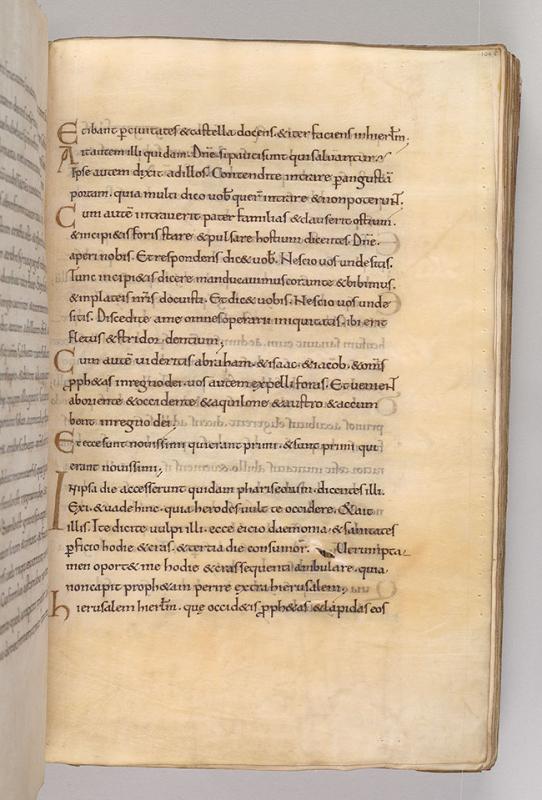 Et ibant p civitates & castella docens. & iter faciens in hierłm.
Ait autem illi quidam. Dñe si pauci sunt qui salvantur;
Ipse autem dixit ad illos. Contendite intrare p angustā
portam. quia multi dico vob quer̄ intrare & non poterunt.
Cum autē intraverit pater familias & clauserit ostium.
& incipi&is foris stare & pulsare hostium dicentes. Dñe.
aperi nobis. Et respondens dic& vob. Nescio vos unde sitis.
Tunc incipi&is dicere manducavimus coram te & bibimus.
& in plateis nr̄is docuisti. Et dic& vobis. Nescio vos unde
sitis. Discedite a me omnes operarii iniquitatis. ibi erit
fletus & stridor dentium;
Cum autē videritis abraham. & isaac. & iacob. & om̄s
pph&as in regno dei. vos autem expelli foris. Et venient
ab oriente & occidente & aquilone & austro & accum
bent in regno dei.
Et ecce sunt novissimi qui erant primi. & sunt primi qui
erant novissimi;
In ipsa die accesserunt quidam phariseorum. dicentes illi.
Exi. & vade hinc. quia herodes vult te occidere. & ait
illis. Ite dicite vulpi illi. ecce eicio daemonia. & sanitates
pficio hodie & cras. & tertia die consumor̄. Verumpta-
men oport& me hodie & cras & sequenti ambulare. quia
non capit proph&am perire extra hierusalem;
hierusalem hierłm. quę occid&is pph&as & lapidas eos